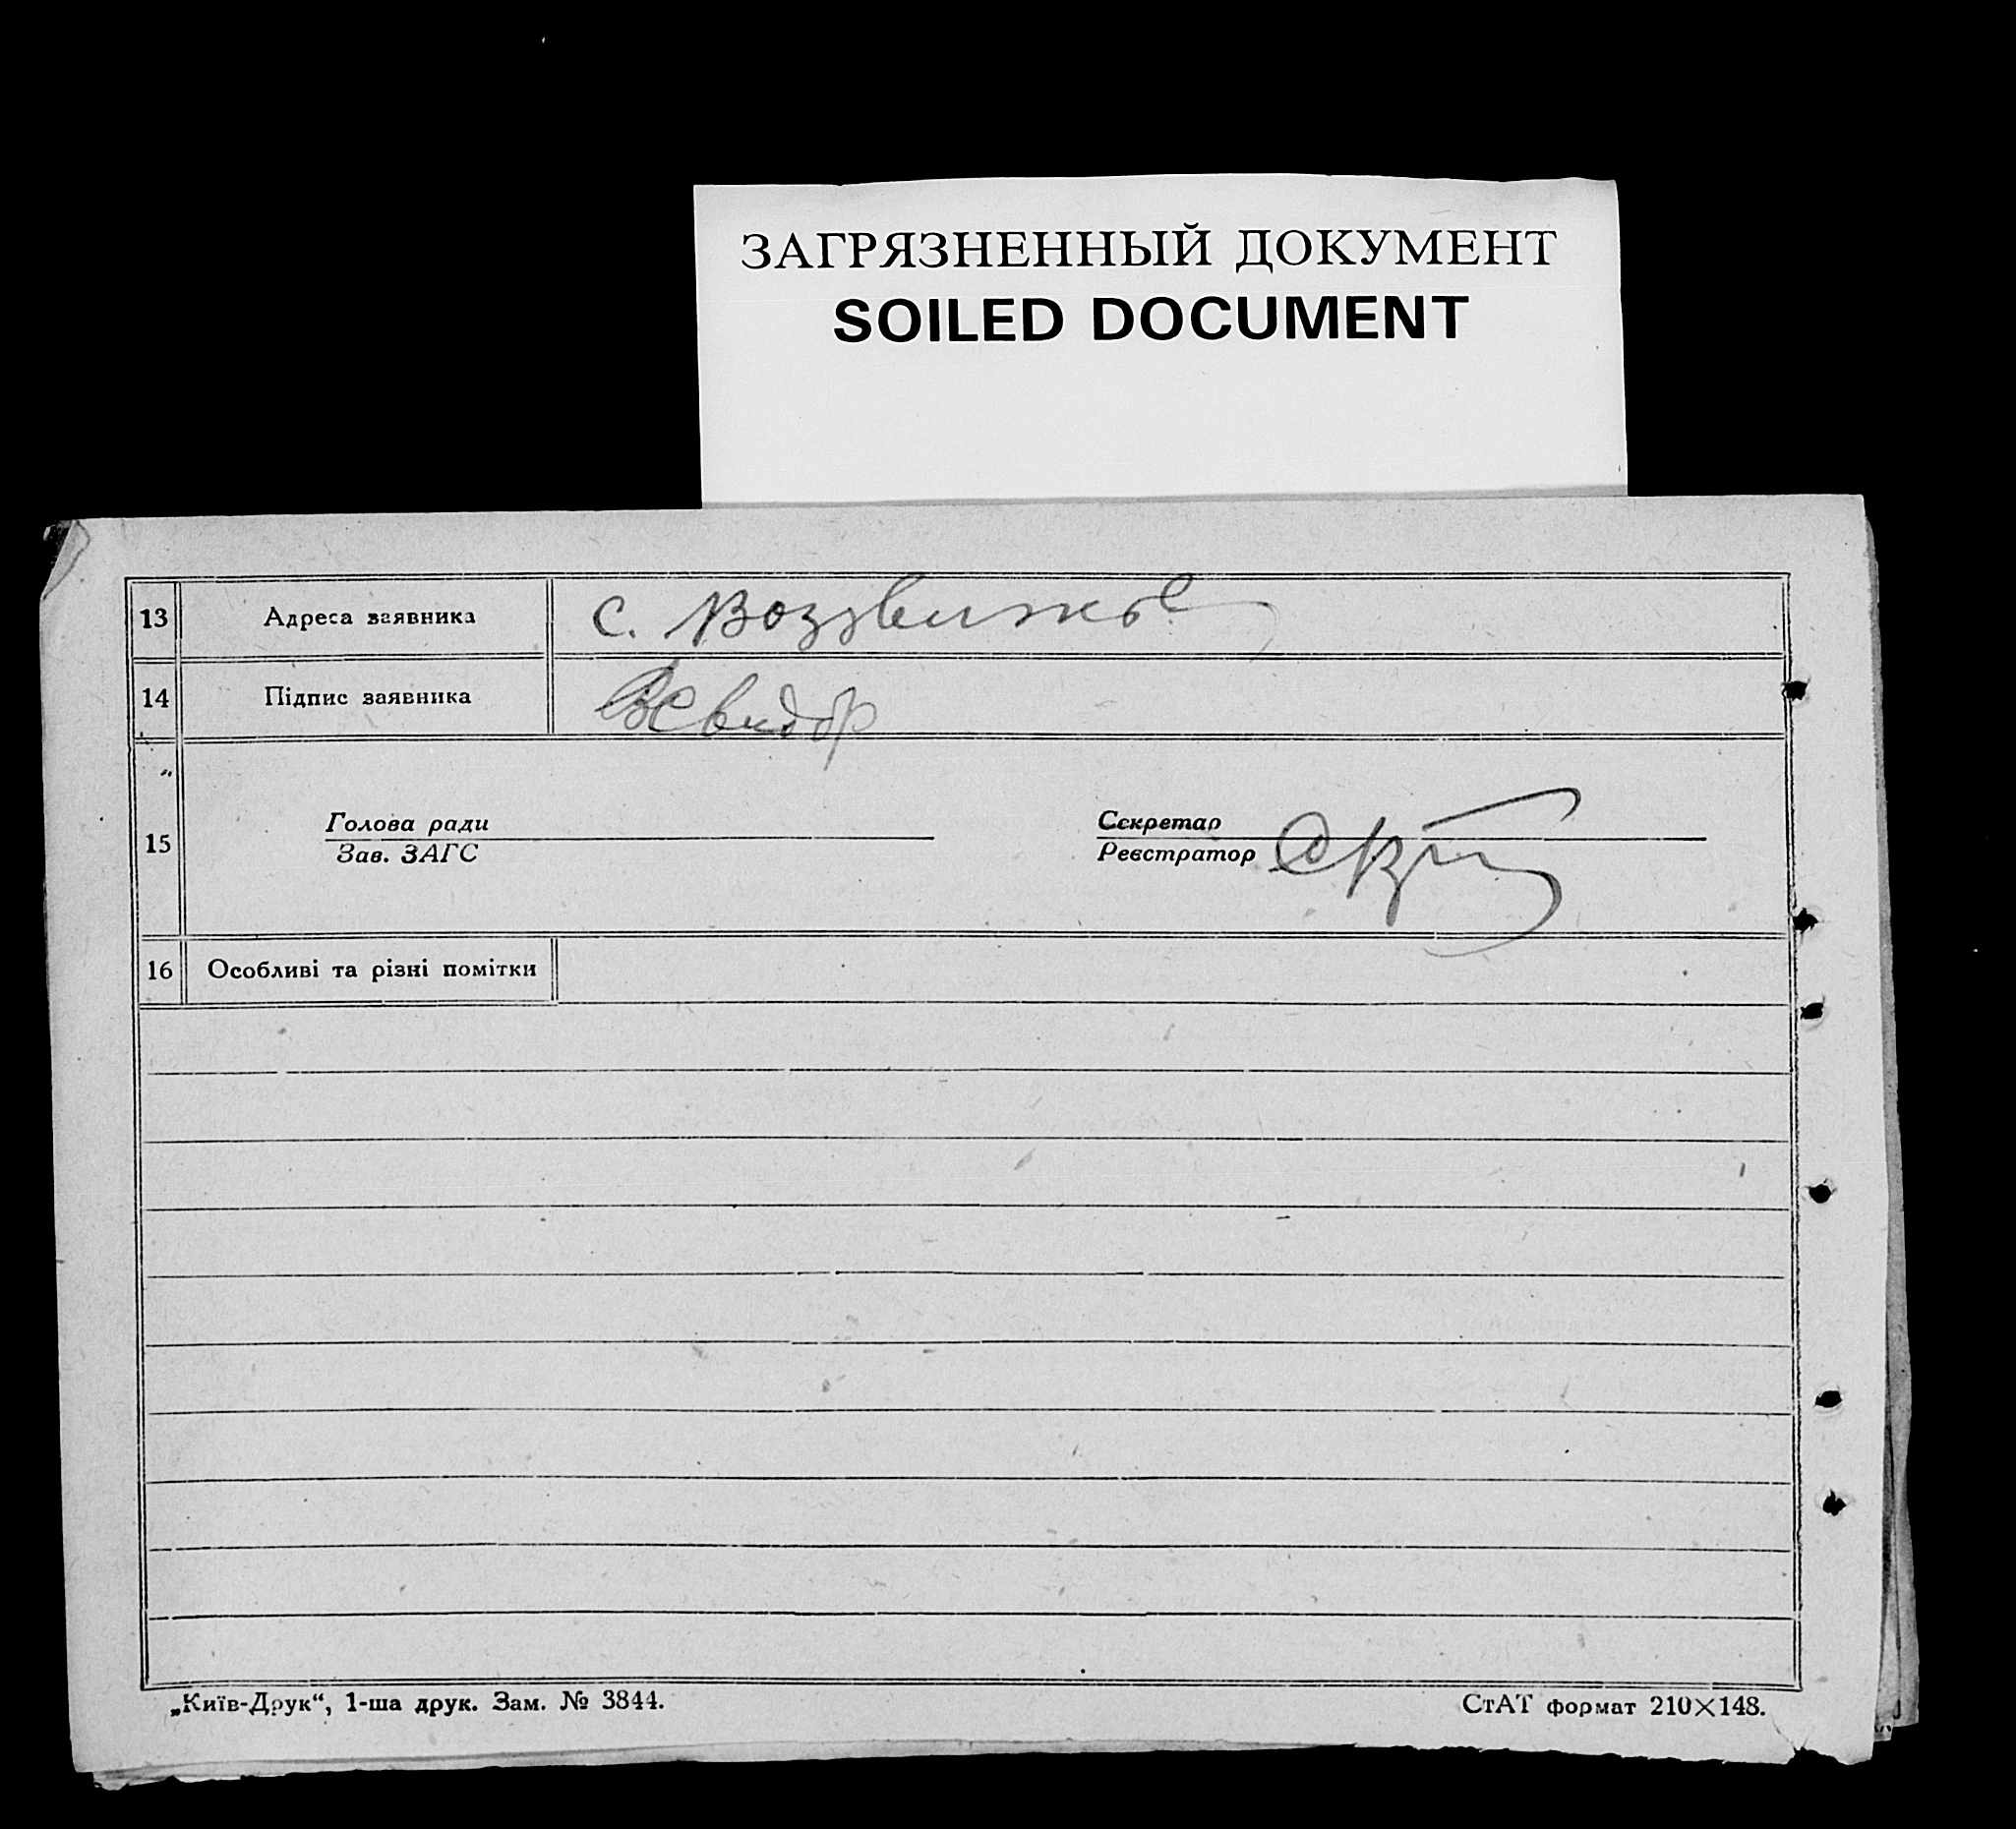 ЗАГРЯЗНЕННЫЙ ДОКУМЕНТ
SOILED DOCUMENT
13 Адреса заявника с. Воздвижье
14 Підпис заявника
15
Голова ради
Зав. ЗАГС
Секретар
Реєстратор
16 Особливі та різні помітки
„Київ-Друк“, 1-ша друк. Зам. № 3844.
СтАТ формат 210×148.